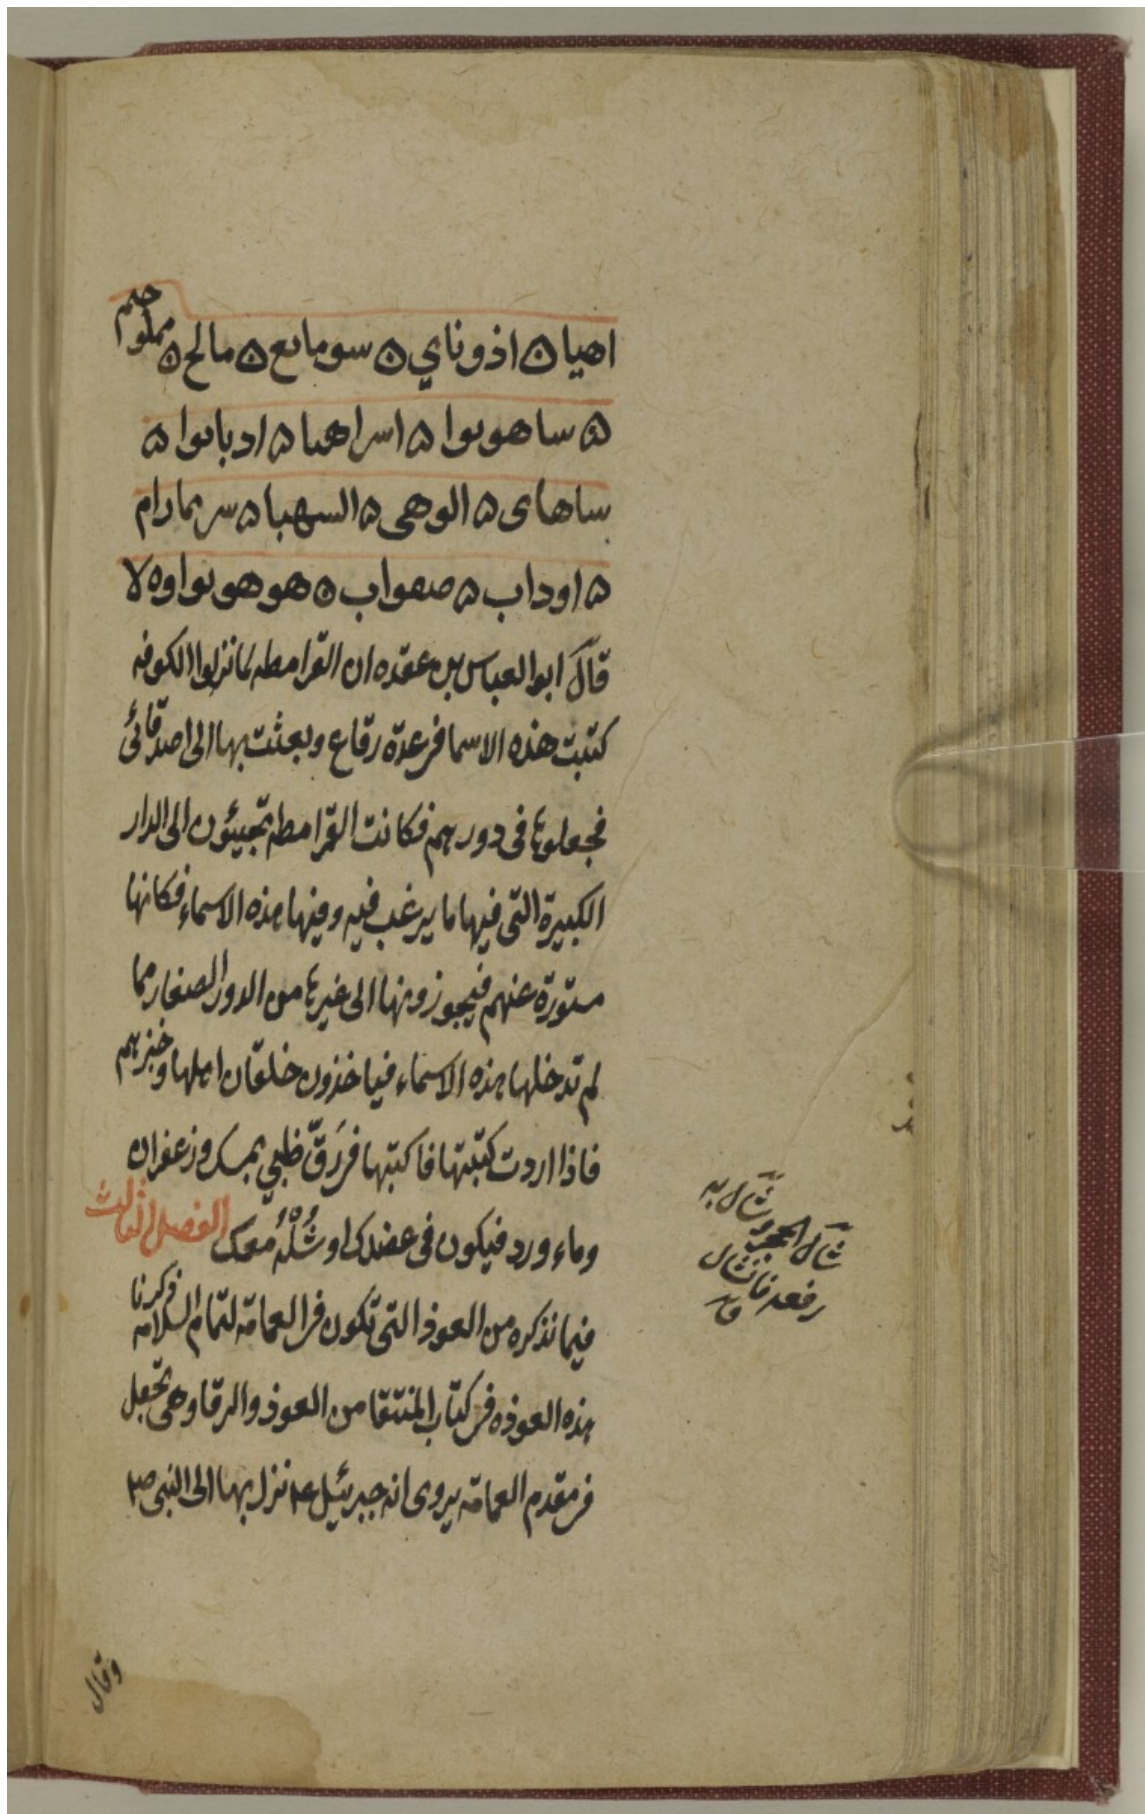 اهيا ۵ اذوناي ۵ سومايع ۵ مالح ۵ مملوا حم
۵ ساهوبوا ۵ اسراهيا ۵ ادبابوا ۵
ساهاى ۵ الوهى ۵ السهبا ۵ سريمادام
۵ اوداب ۵ صعواب ۵ هو هو بوا وه لا
قال ابو العباس بن عقده ان القرامطه لما نزلوا الكوفه
كتبت هذه الاسما فى عدة رقاع وبعثت بها الى اصدقائى
فجعلوها فى دورهم فكانت القرامطه تجيئون الى الدار
الكبيرة التى فيها ما يرغب فيه وفيها هذه الاسماء فكانها
مستورة عنهم فيجوزونها الى غيرها من الدور الصغار مما
لم تدخلها هذه الاسماء فياخذون خلقان اهلها وخبزهم
فاذا اردت كتبتها فاكتبها فى رَقّ ظبي بمسك وزعفران
وماء ورد فيكون فى عضدك او شُلْهُ معك الفصل الثالث
فيما نذكره من العوذ التى تكون فى العمامة لتمام السلامه ذكرنا
هذه العوذه فى كتاب المنتقا من العوذ والرقا وهى تجعل
فى مقدم العمامة يروى انه جبرئيل ع نزل بها الى النبى ص
شال الحجر وشال به
رفعه فانشال
ق
وقال